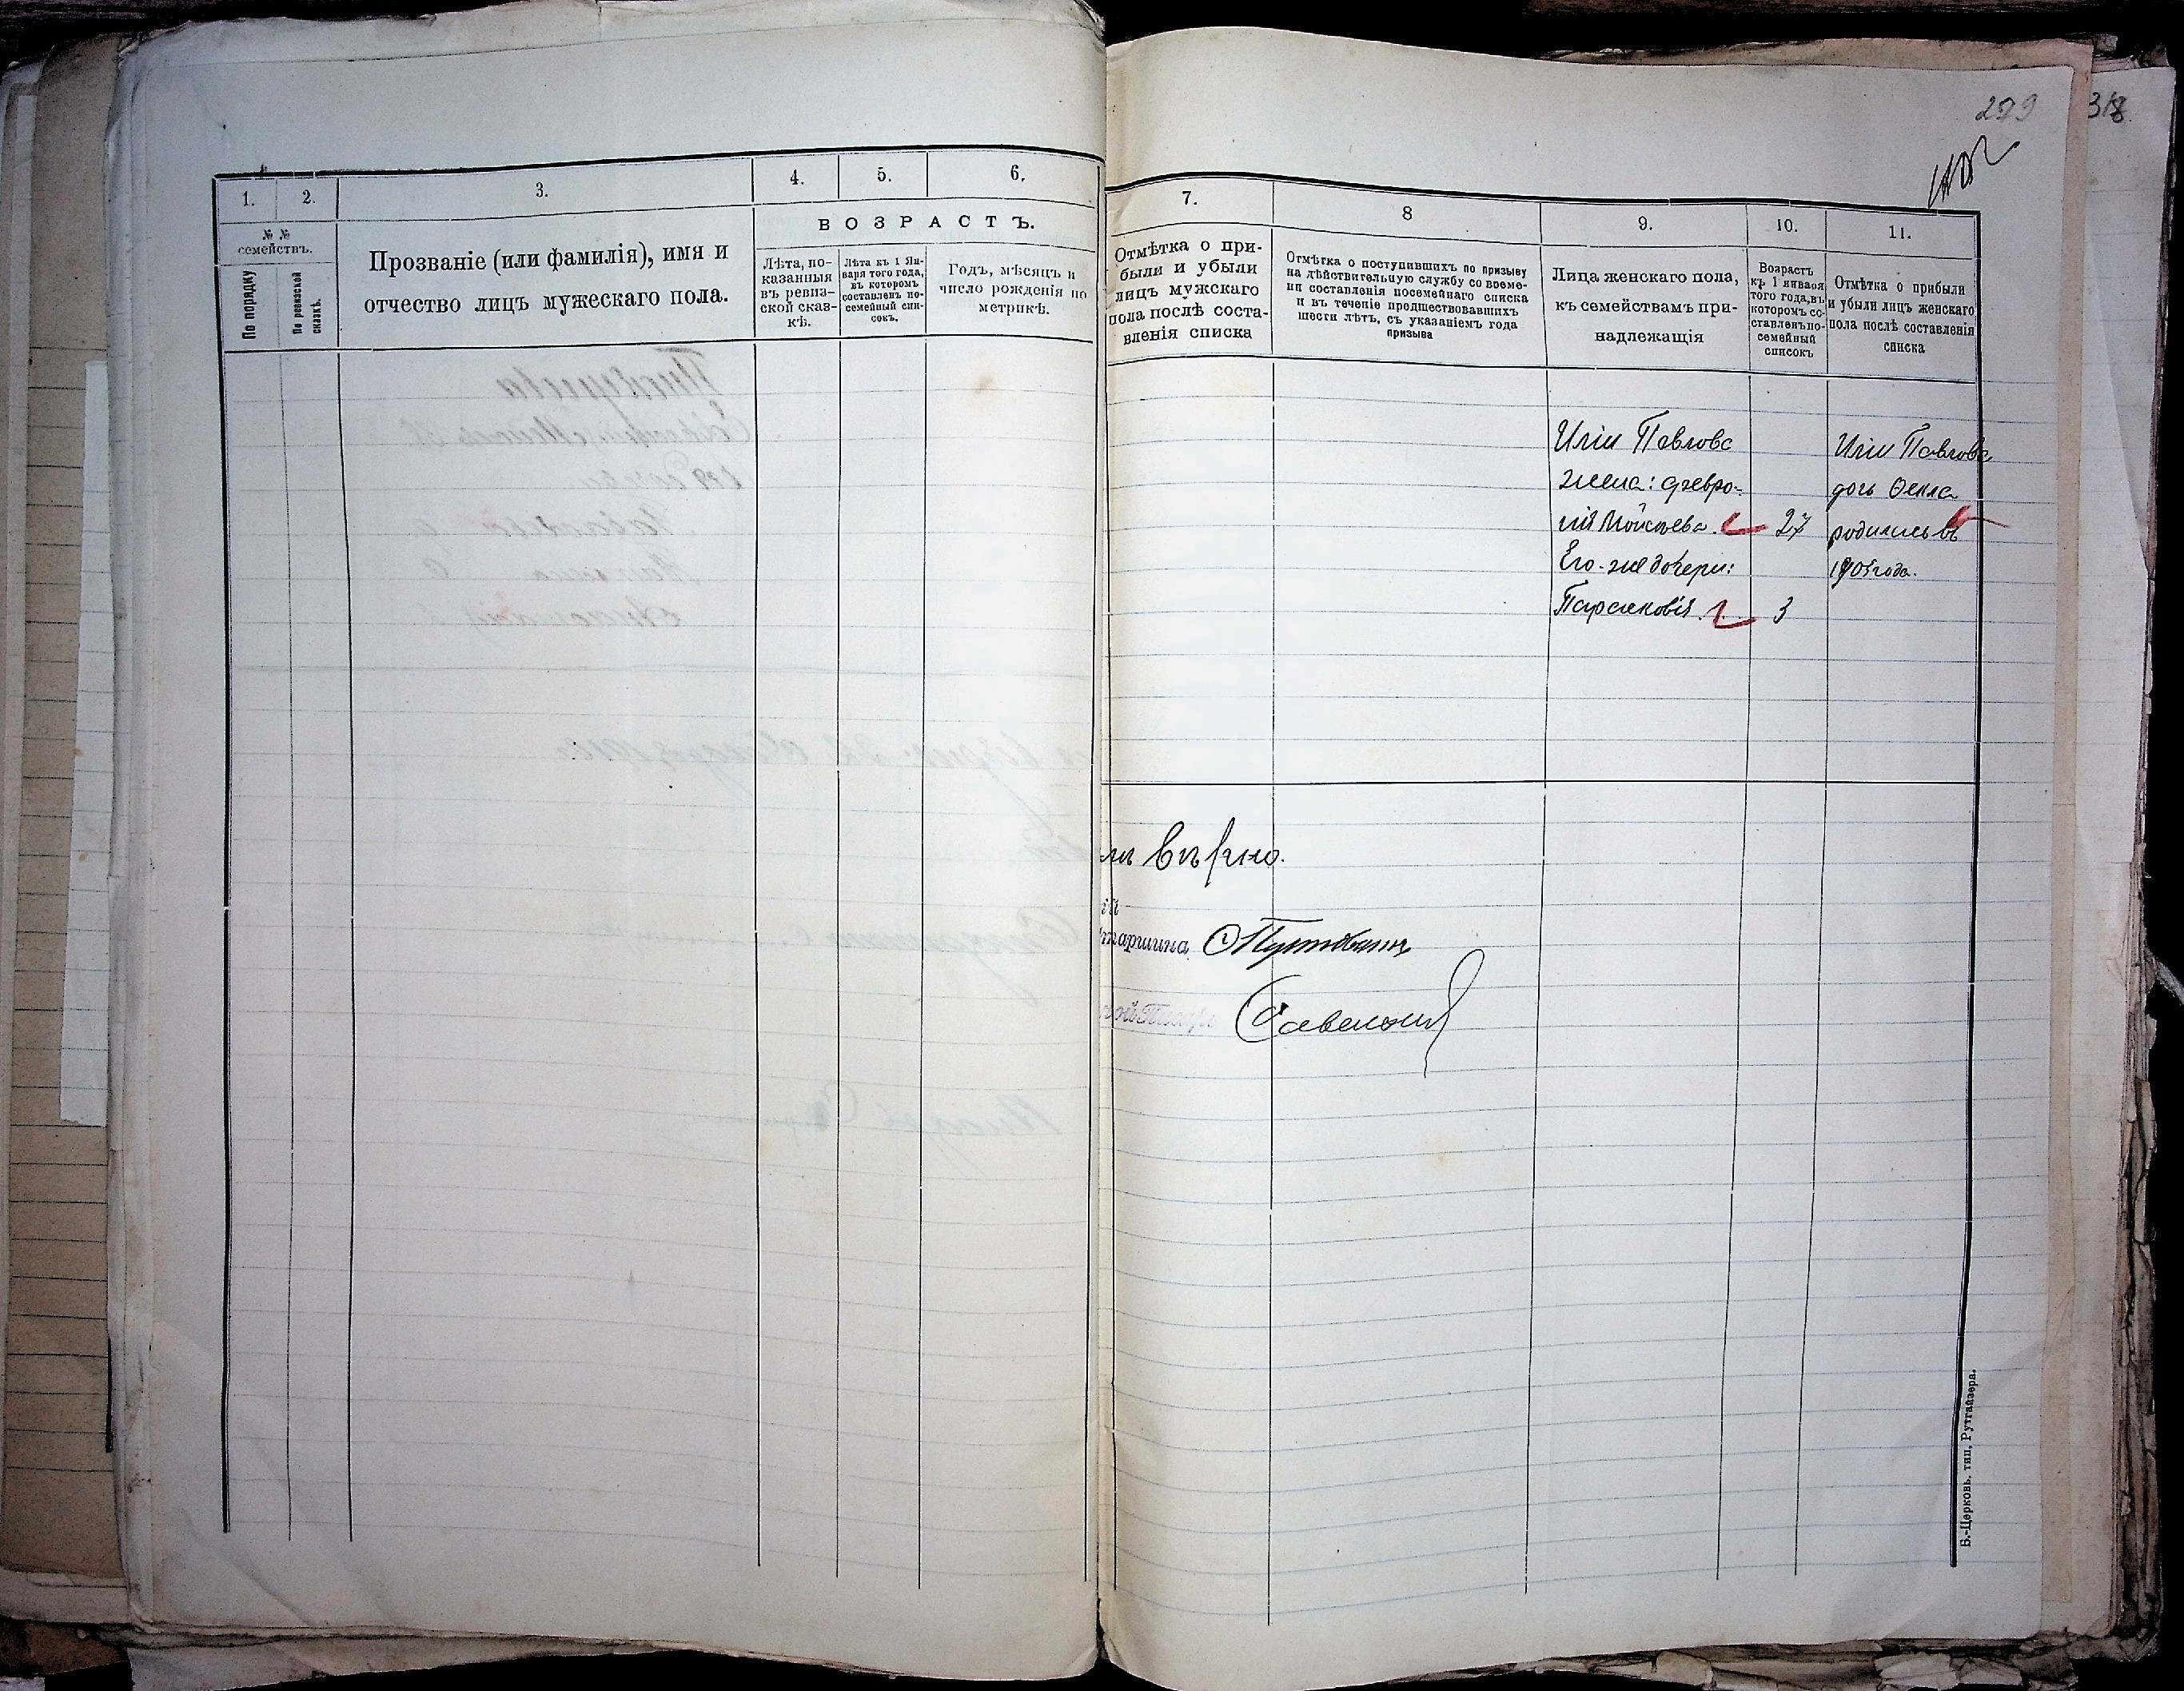 1.
2.
3.
4.
5.
6.
№ №
семействъ.
По порядку
По ревизской
сказкѣ.
Прозваніе (или фамилія), имя и
отчество лицъ мужескаго пола.
ВОЗРАСТЪ.
Лѣта, по-
казанныя
въ ревиз-
ской сказ-
кѣ.
Лѣта къ 1 Ян-
варя того года,
въ которомъ
составленъ по-
семейный спи-
сокъ.
Годъ, мѣсяцъ и
число рожденія по
метрикѣ.
279
318
7.
8
9.
10.
11.
Отмѣтка о при-
были и убыли
лицъ мужскаго
пола послѣ соста-
вленія списка
Отмѣтка о поступившихъ по призыву
на дѣйствительную службу со време-
ни составленія посемейнаго списка
и въ теченіе предшествовавшихъ
шести лѣтъ, съ указаніемъ года
призыва
Лица женскаго пола,
къ семействамъ при-
надлежащія
Возрастъ
къ 1 января
того года, въ
которомъ со-
ставленъ по-
семейный
списокъ
Отмѣтка о прибыли
и убыли лицъ женскаго
пола послѣ составленія
списка
Иліи Павлова
жена: февро-
нія Мойсѣева 27
Его-же дочери:
Парасковія 3
Иліи Павлова
дочь Ѳекла
родилась въ
1905 года.
вѣрно.
таршина
Б.-Церковь, тип. Рутгайзера.